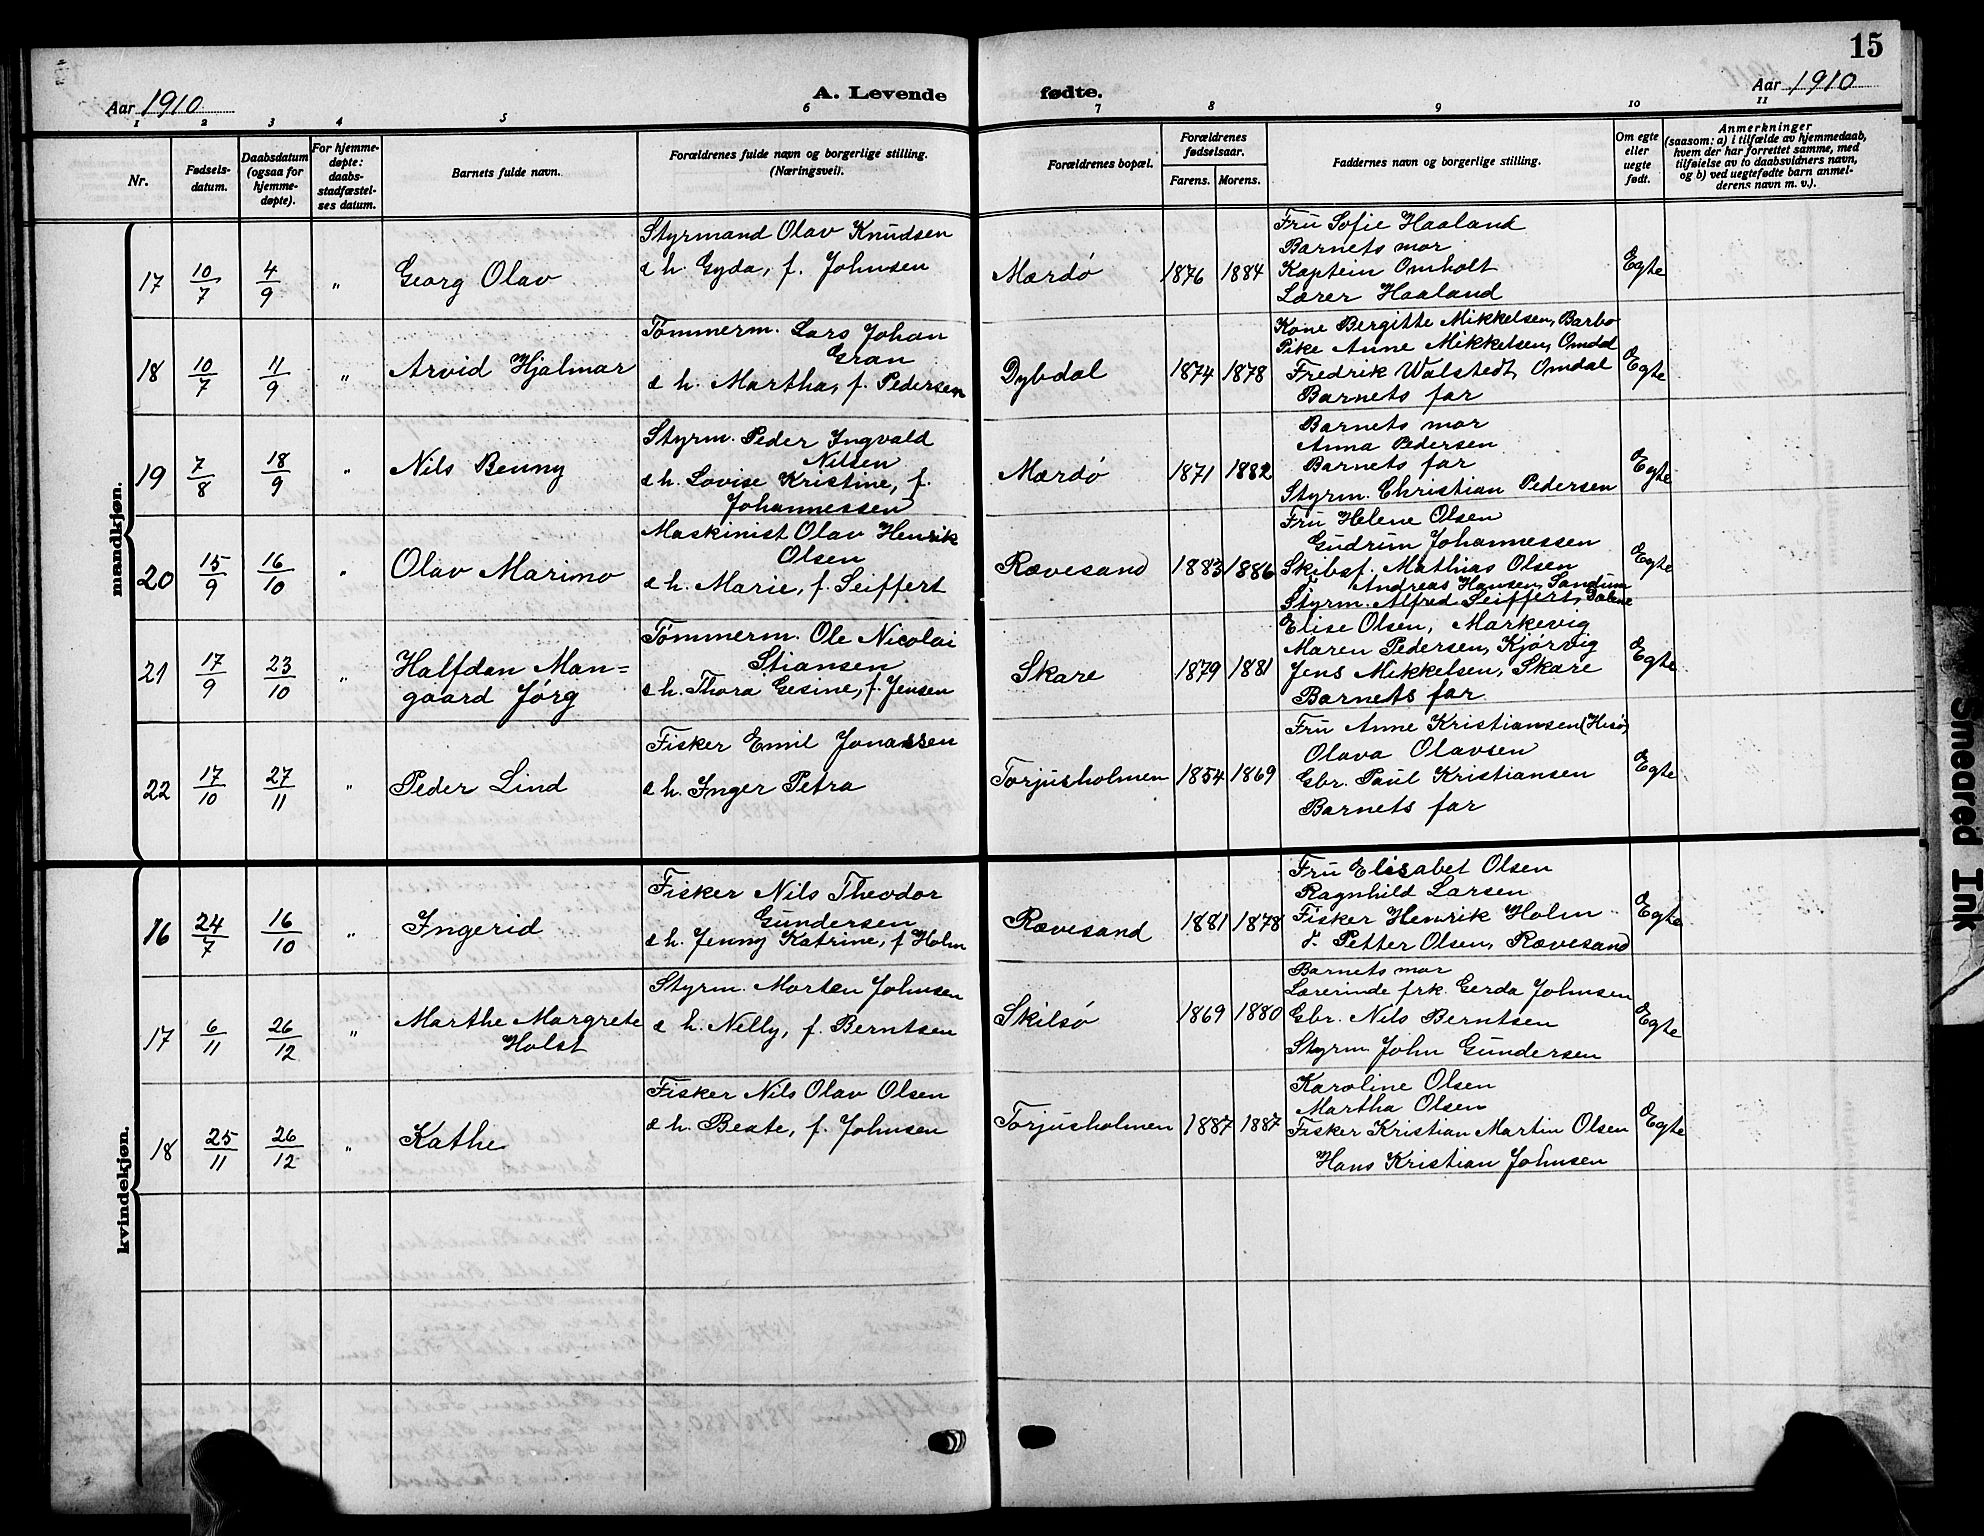 15
Aar 1910
A. Levende fødte.
Aar 1910
1 2 3 4 5 6 7 8 9 10 11
Nr.
Fødsels-
datum.
Daabsdatum
(ogsaa for
hjemme-
døpte).
For hjemme-
døpte:
daabs-
stadfæstel-
ses datum.
Barnets fulde navn.
Forældrenes fulde navn og borgerlige stilling.
(Næringsvei).
Forældrenes bopæl.
Forældrenes
fødselsaar.
Farens. Morens.
Faddernes navn og borgerlige stilling.
Om egte
eller
uegte
født.
Anmerkninger
(saasom: a) i tilfælde av hjemmedaab,
hvem der har forrettet samme, med
tilføielse av to daabsvidners navn,
og b) ved uegtefødte barn anmel-
derens navn m. v.).
mandkjøn.
17 10/7 4/9 " Georg Olav
Styrmand Olav Knudsen
& h. Gyda, f. Johnsen
Mærdø 1876 1884
Fru Sofie Haaland
Barnets mor
Kaptein Omholt
Lærer Haaland
Egte
18 10/7 11/9 " Arvid Hjalmar
Tømmerm. Lars Johan
Gran
& h. Martha, f. Pedersen
Dybdal 1874 1878
Kone Bergitte Mikkelsen, Barbo
Pike Anne Mikkelsen, Omdal
Fredrik Walstedt, Omdal
Barnets far
Egte
19 7/8 18/9 " Nils Benny
Styrm. Peder Ingvald
Nilsen
& h. Lovise Kristine, f.
Johannessen
Mærdø 1871 1882
Barnets mor
Anna Pedersen
Barnets far
Styrm. Christian Pedersen
Egte
20 15/9 16/10 " Olav Marimo
Maskinist Olav Henrik
Olsen
& h. Marie, f. Seiffert
Rævesand 1883 1886
Fru Helene Olsen
Gudrun Johannessen
Skibsf. Mathias Olsen
F. Andreas Hansen, Sandum
Styrm. Alfred Seiffert,
Egte
21 17/9 23/10 " Halfdan Man=
gaard Jørg
Tømmerm. Ole Nicolai
Stiansen
& h. Thora Gesine, f. Jensen
Skare 1879 1881
Elise Olsen, Markevig
Maren Pedersen, Kjørvig
Jens Mikkelsen, Skare
Barnets far
Egte
22 17/10 27/11 " Peder Lind
Fisker Emil Jonassen
& h. Inger Petra
Torjusholmen 1854 1869
Fru Anne Kristiansen (Hisø)
Olava Olavsen
Gbr. Paul Kristiansen
Barnets far
Egte
kvindekjøn.
16 24/7 16/10 " Ingerid
Fisker Nils Theodor
Gundersen
& h. Jenny Katrine, f. Holm
Rævesand 1881 1878
Fru Elisabet Olsen
Ragnhild Larsen
Fisker Henrik Holm
F. Petter Olsen, Rævesand
Egte
17 6/11 26/12 " Marthe Margrete
Holst
Styrm. Morten Johnsen
& h. Nelly, f. Berntsen
Skilsø 1869 1880
Barnets mor
Lærerinde frk. Gerda Johnsen
Gbr. Nils Berntsen
Styrm. John Gundersen
Egte
18 25/11 26/12 " Kathe
Fisker Nils Olav Olsen
& h. Beate, f. Johnsen
Torjusholmen 1887 1887
Karoline Olsen
Martha Olsen
Fisker Kristian Martin Olsen
Hans Kristian Johnsen
Egte
Smeared Ink